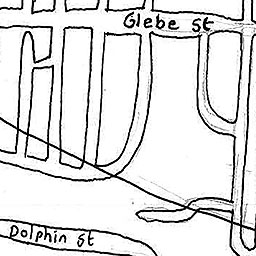 Glebe St
Dolphin St